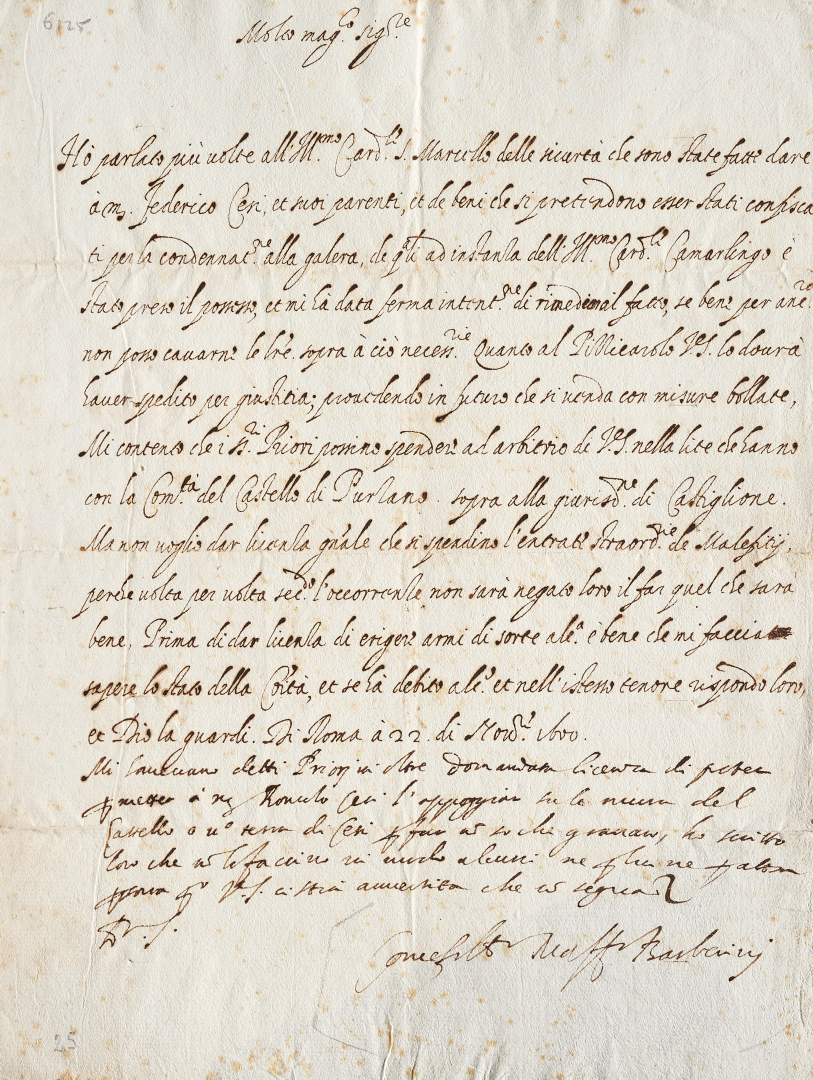 6125
Molto mag.co sig.re
Hò parlato più volte all'Ill.mo Card.le S. Marcello delle sicurtà che sono state fatte dare
à m. Federico Cesi, et suoi parenti, et de beni che si pretendono esser stati confisca
ti per la condennat.ne alla galera, de q.li ad instanza dell'Ill.mo Card.le Camarlingo è
stato preso il possesso, et mi hà data ferma intent.ne di rimediar al fatto, se bene per anc.
non posso cavarne le lre sopra à ciò necess.rie Quanto al Pizzicarolo V.S. lo dovrà
haver spedito per giustitia; provedendo in futuro che si venda con misure bollate,
Mi contento che i ss.ri Priori possino spendere ad arbitrio di V.S. nella lite che hanno
con la Com.tà del Castello di Purzano sopra alla giurisd.ne di Castiglione.
Ma non voglio dar licenza gn'ale che si spendino l'entrate straord.rie de Malefitij,
perche volta per volta sec.do l'occorrenze non sarà negato loro il far quel che sarà
bene, Prima di dar licenza di erigere armi di sorte alc.a è bene che mi faccia
sapere lo stato della Co'ità, et se hà debito alc.o et nell'istesso tenore rispondo loro,
et Dio la guardi. Di Roma à 22. di Nov.re 1600.
Mi scrivevano detti Priori in oltre domandar licenza di poter
p'metter à m. Romulo Cesi l'appoggiar su le mura del
Castello o v.o terra di Cesi ho scritto
loro che nò lo faccino in modo alcuno ne p lui ne p altra
V.S. ci stia avvertita che nò segua
D. V. S.
Come f.llo Maff.o Barberini
25